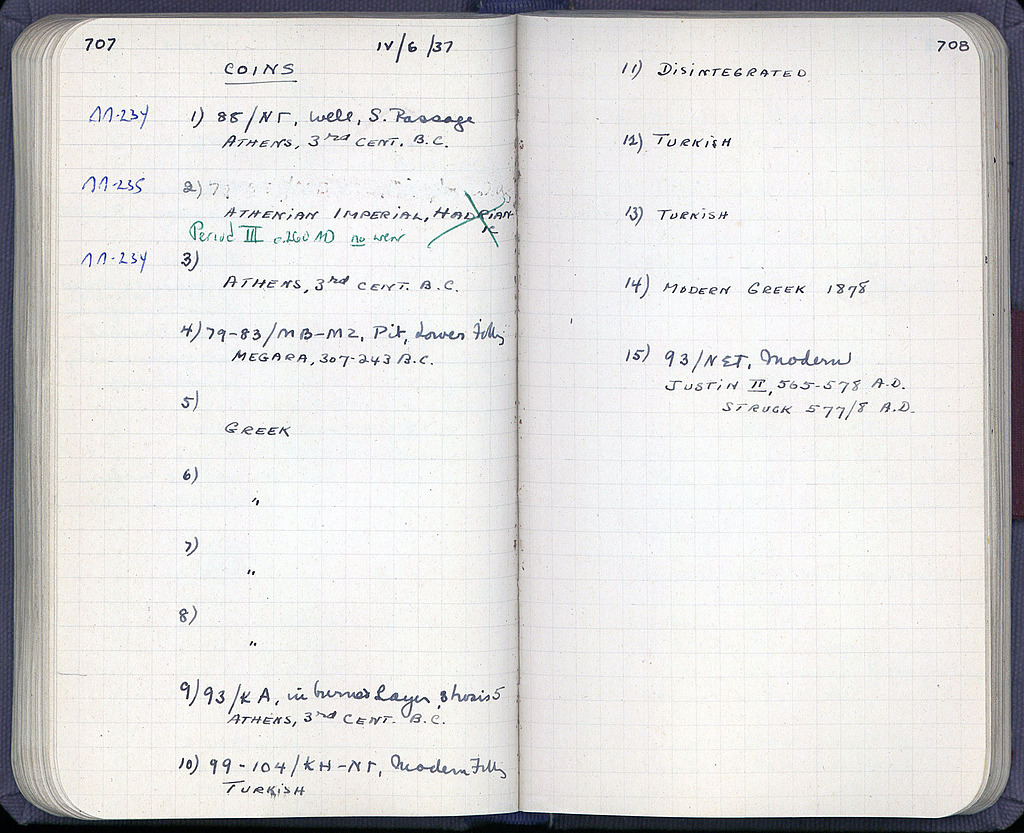 707
IV/6/37
COINS
ΛΛ-234 1) 88/ΝΓ, Well, S. Passage
ATHENS, 3rd CENT. B.C.
ΛΛ-235 2)
ATHENIAN IMPERIAL, HADRIANIC
Period III c.260 AD no wear
ΛΛ-234 3)
ATHENS, 3rd CENT. B.C.
4) 79-83/ΜΒ-ΜΖ, Pit, Lower Filling
MEGARA, 307-243 B.C.
5)
GREEK
6)
"
7)
"
8)
"
9) 93/ΚΑ, in burned Layer,
ATHENS, 3rd CENT. B.C.
10) 99-104/ΚΗ-ΝΓ, Modern Filling
TURKISH
708
11) DISINTEGRATED
12) TURKISH
13) TURKISH
14) MODERN GREEK 1878
15) 93/ΝΣΤ, Modern
JUSTIN II, 565-578 A.D.
STRUCK 577/8 A.D.